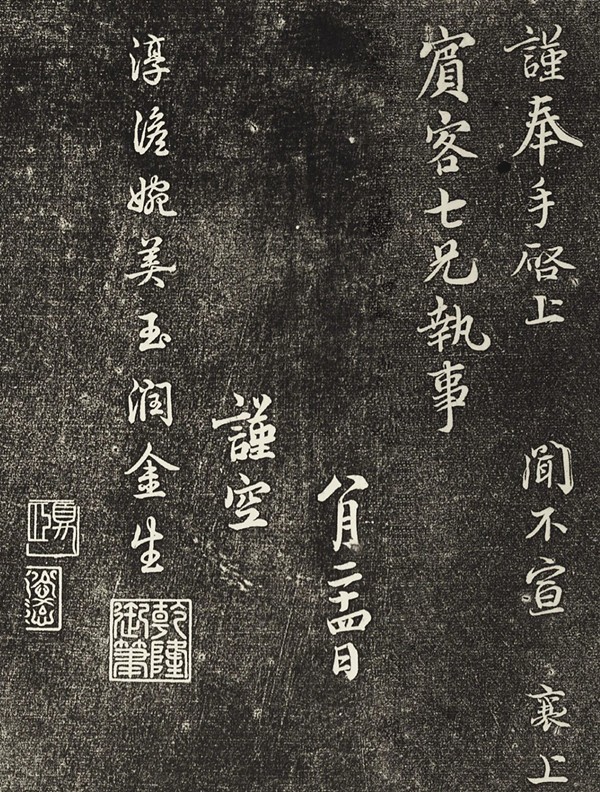 謹奉手啓上　聞不宣　襄上
賓客七兄執事
八月二十四日
謹空
淳澹婉美玉潤金生
乾隆御筆